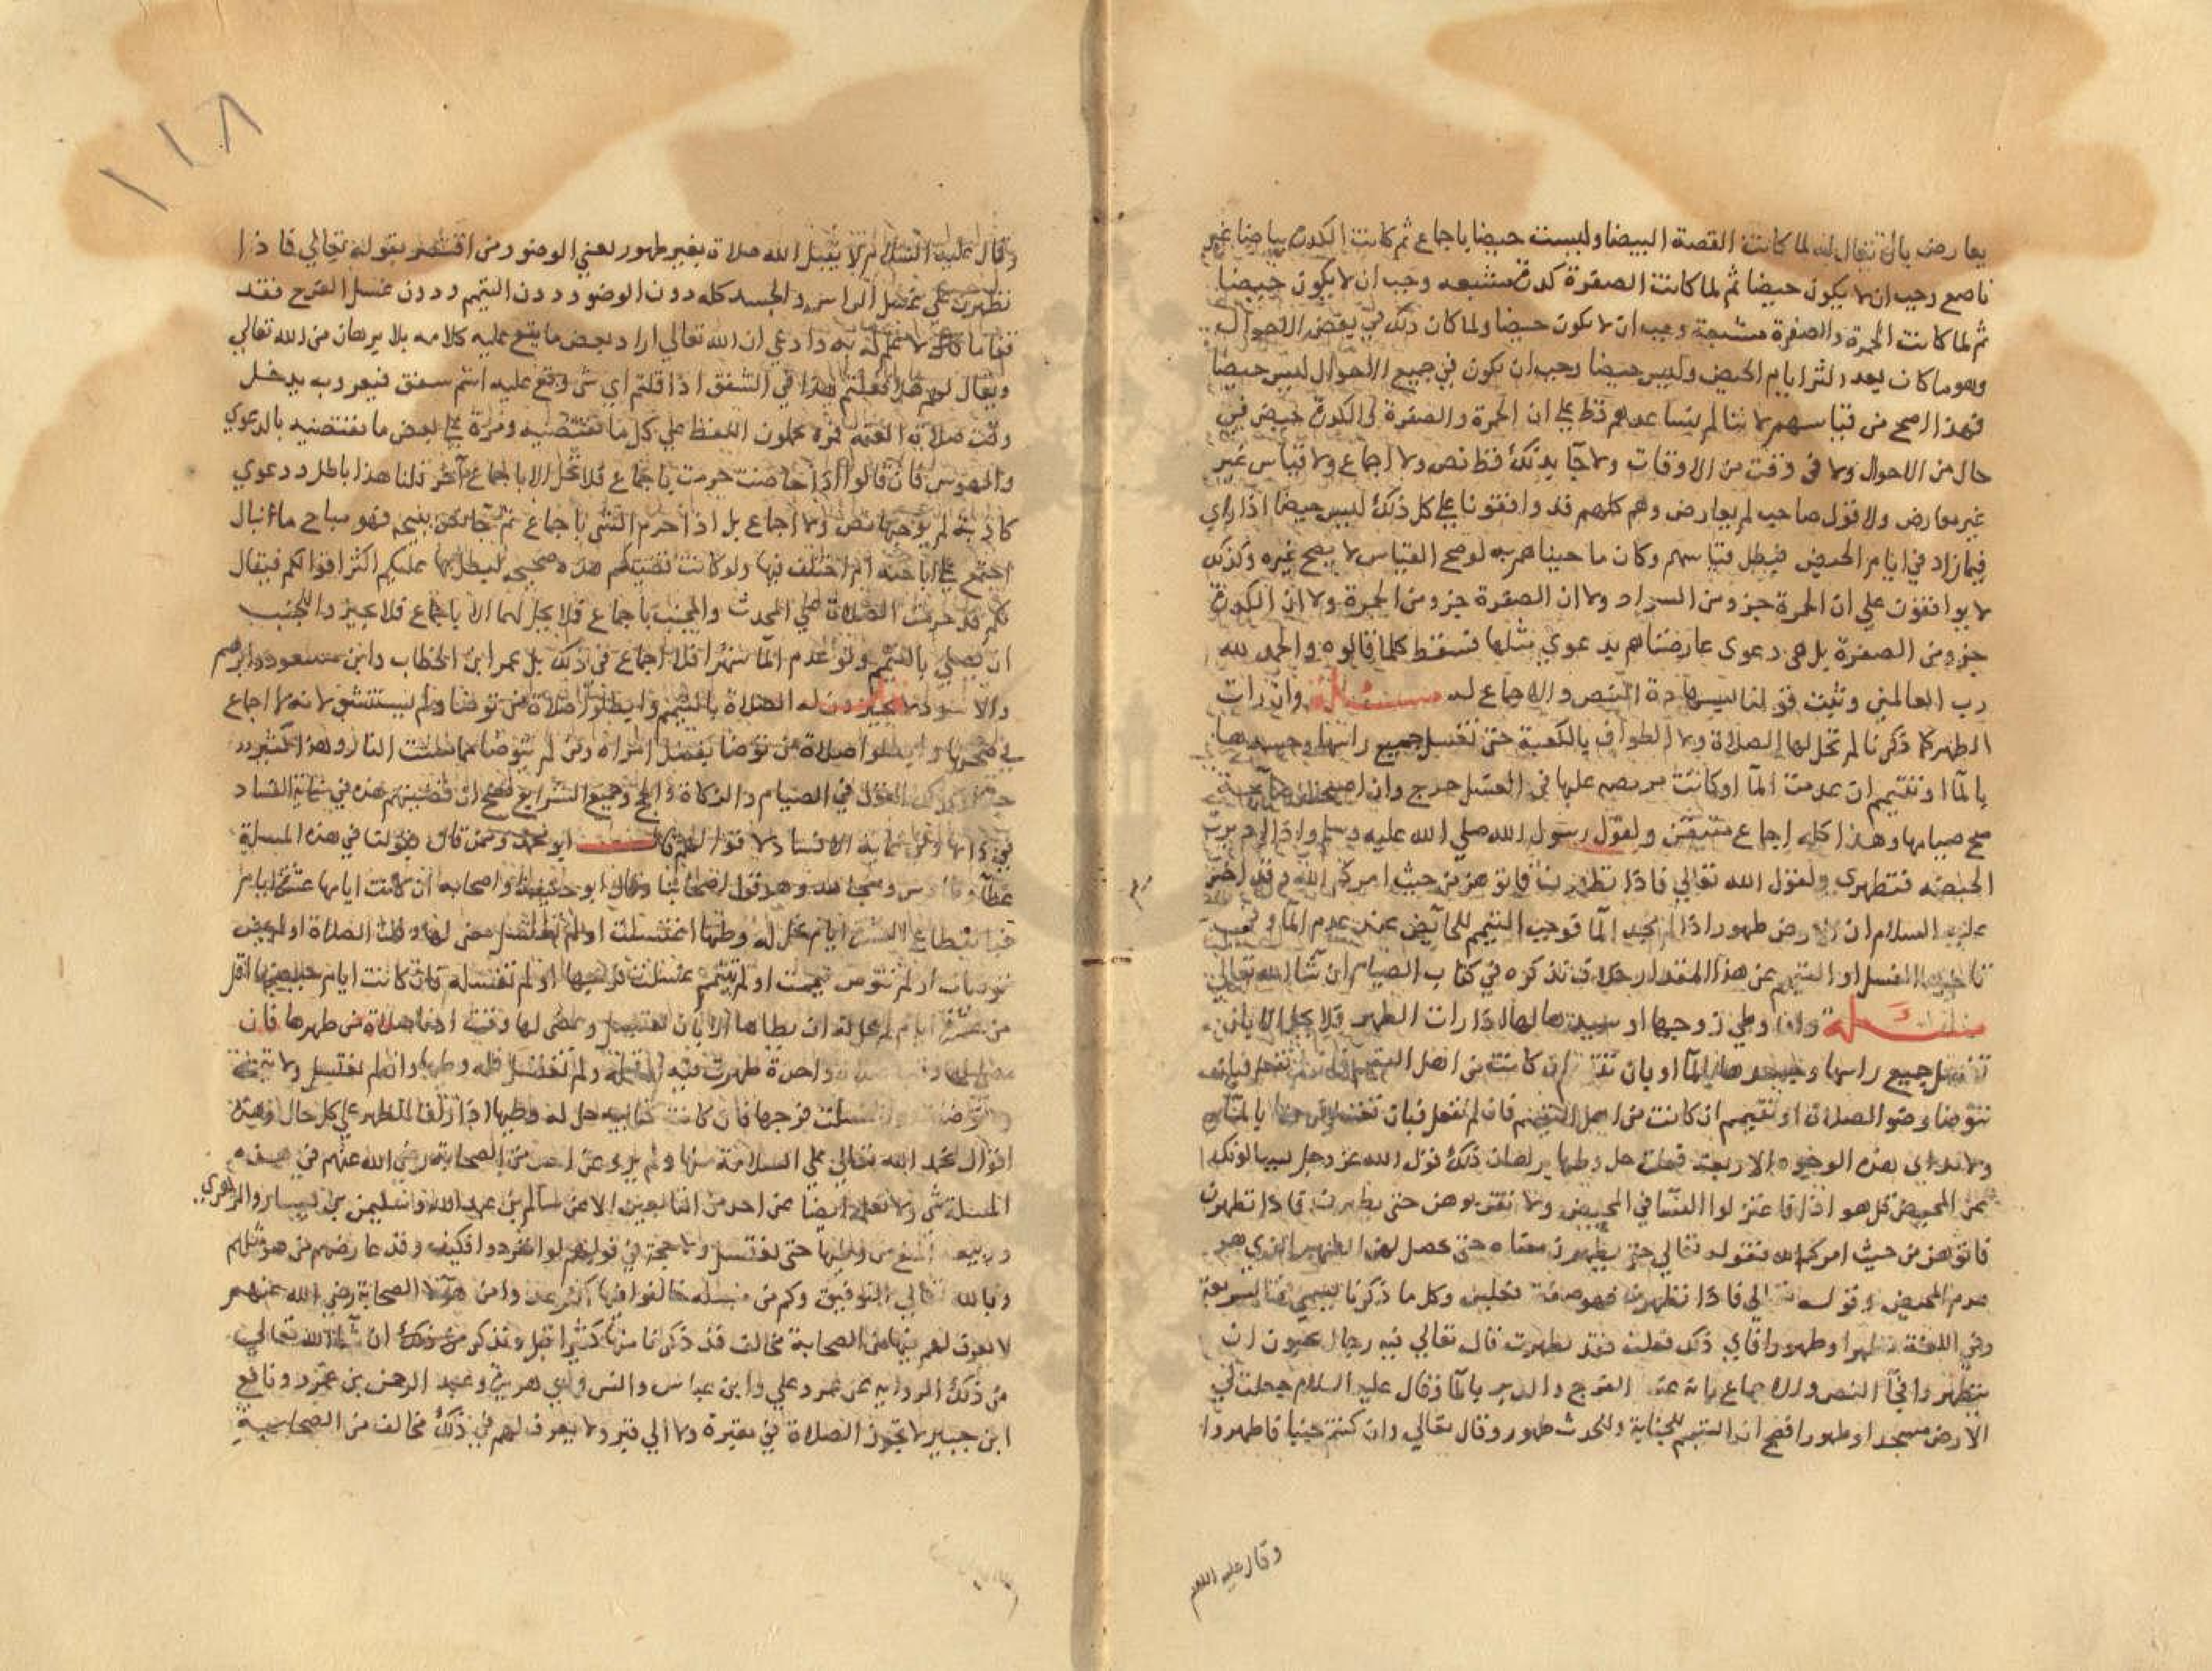 يعارض بان يقال له لما كانت القصة البيضا وليست حيضا باجماع ثم كانت الكدرة بياضا غير
ناصع وجب ان لا يكون حيضا ثم لما كانت الصفرة كدرة مشبعه وجب ان لا يكون حيضا
ثم لما كانت الحمرة والصفرة مشبعة وجب ان لا يكون حيضا ولما كان ذلك في بعض الاحوال
وهو ما كان بعد اكثر ايام الحيض وليس حيضا وجب ان يكون في جميع الاحوال ليس حيضا
فهذا اصح من قياسهم لاننا لم نساعدهم قط على ان الحمرة والصفرة والكدرة حيض في
حال من الاحوال ولا في وقت من الاوقات ولا جا بذلك قط نص ولا اجماع ولا قياس غير
غير معارض ولا قول صاحب لم يعارض وهم كلهم قد وافقونا على كل ذلك ليس حيضا اذا راي
فيما زاد في ايام الحيض فبطل قياسهم وكان ما جيناهم به لو صح القياس لا يصح غيره وكذلك
لا يوافقون على ان الحمرة جزو من السواد ولا ان الصفرة جزو من الحمرة ولا ان الكدرة
جزو من الصفرة بل هي دعوي عارضناهم بدعوي مثلها فسقط كلما قالوه والحمد لله
رب العالمين وثبت قولنا بشهادة النص والاجماع له مسئلة وان رات
الطهر كما ذكرنا لم تحل لها الصلاة ولا الطواف بالكعبة حتى تغسل جميع راسها وجسدها
بالما او تتيمم ان عدمت الما او كانت مريضه عليها في الغسل حرج وان اصبحت صايمة
صح صيامها وهذا كله اجماع متيقن ولقول رسول الله صلي الله عليه وسلم واذا ادبرت
الحيضه فتطهري ولقول الله تعالي فاذا تطهرن فاتوهن من حيث امركم الله وقد اخبر
عليه السلام ان الارض طهور اذا لم نجد الما فوجب التيمم للحايض عند عدم الما
تاخيرها الغسل او التيمم عن هذا المقدار خلاف نذكره في كتاب الصيام ان شا الله تعالي
مسئلة واما وطي زوجها او سيدها لها اذا رات الطهر فلا يحل الا بان
تغسل جميع راسها وجسدها بالما او بان تتيمم ان كانت من اهل التيمم فان لم تفعل فبان
تتوضا وضو الصلاة او تتيمم ان كانت من اهل التيمم فان لم تفعل فبان تغسل فرجها بالما
ولا بد اي هذه الوجوه الاربعة فعلت حل وطيها برهان ذلك قول الله عز وجل يسالونك
عن المحيض قل هو اذا فاعتزلوا النسا في المحيض ولا تقربوهن حتى يطهرن فاذا تطهرن
فاتوهن من حيث امركم الله فقوله تعالي حتى يطهرن معناه حتى يحصل لهن الطهر الذي هو
عدم المحيض وقوله تعالي فاذا تطهرن فهو صفة فعلهن وكل ما ذكرنا يسمي في الشريعة
وفي اللغة تطهرا وطهورا فاي ذلك فعلت فقد تطهرت قال تعالي فيه رجال يحبون ان
يتطهروا فجا النص والاجماع بانه غسل الفرج والدبر بالما وقال عليه السلام جعلت لي
الارض مسجدا وطهورا فصح ان التيمم للجنابة وللحدث طهور وقال تعالي وان كنتم جنبا فاطهروا
وقال عليه السلم
١١٨
وقال عليه السلام لا يقبل الله صلاة بغير طهور يعني الوضو ومن اقتصر بقوله تعالي فاذا
تطهرن على غسل الراس والجسد كله دون الوضو ودون التيمم ودون غسل الفرج فقد
قفا ما لا علم له به وادعي ان الله تعالي اراد بعض ما يقع عليه كلامه بلا برهان من الله تعالي
ويقال لهم هلا فعلتم هذا في الشفق اذ قلتم اي شي وقع عليه اسم شفق فبغروبه يدخل
وقت صلاة العتمه فمرة تحملون اللفظ على كل ما يقتضيه ومرة على بعض ما يقتضيه بالدعوي
والهوس فان قالوا اذا حاضت حرمت باجماع فلا تحل الا باجماع آخر قلنا هذا باطل ودعوي
كاذبة لم يوجبها نص ولا اجماع بل اذا حرم الشي باجماع ثم جا نص يبيحه فهو مباح ما نبال
اجتمع على اباحته ام اختلف فيها ولو كانت قضيتكم هذه صحيحه ليطل بها عليكم اكثر اقوالكم فيقال
لكم قد حرمت الصلاة علي المحدث والمجنب باجماع فلا يحل لهما الا باجماع فلا نجيز للجنب
ان يصلي بالتيمم ولو عدم الما شهرا فلا اجماع في ذلك بل عمر ابن الخطاب وابن مسعود وابراهيم
والاسود لا يجيزون له الصلاة بالتيمم وابطلوا صلاة من توضا ولم يستنشق لانه لا اجماع
في صحتها وابطلوا صلاة من توضا بفضل امراه ومن لم يتوضا مما مست النار وهذا كثير
وكذلك القول في الصيام والزكاة والحج وجميع الشرايع فصح ان قضيتهم هذه في غاية الفساد
في ذاتها وفي غاية الافساد لا قوالهم ابو محمد وممن قال بقولنا في هذه المسلة
عطا وطاوس ومجاهد وهو قول اصحابنا وقال ابو حنيفة واصحابه ان كانت ايامها عشرة ايام
فبانقطاع العشرة ايام يحل له وطيها اغتسلت او لم تغتسل مضي لها وقت الصلاة او لم يمض
توضات او لم تتوض تيممت او لم تتيمم غسلت فرجها او لم تغسله فان كانت ايام حيضها اقل
من عشرة ايام لم يحل له ان يطاها الا بان تغتسل او يمضي لها وقت ادنا صلاة من طهرها فان
مضي لها وقت صلاة واحدة طهرت فيه او قبله ولم تغتسل فله وطيها وان لم تغتسل ولا تيممت
ولا توضات ولا غسلت فرجها فان كانت كتابيه حل له وطيها اذا رات الطهر على كل حال وهذه
اقوال نحمد الله تعالي علي السلامة منها ولم يرو عن احد من الصحابة رضي الله عنهم في هذه
المسلة شي ولا نعلم ايضا عن احد من التابعين الا عن سالم بن عبد الله وسليمن بن يسار والزهري
وربيعه المنع من وطيها حتى تغتسل ولا حجة في قولهم لو انفردوا فكيف وقد عارضهم من هو مثلهم
وبالله تعالي التوفيق وكم من مسله خالفوا فيها اكثر عددا من هولا الصحابة رضي الله عنهم
لا يعرف لهم فيها من الصحابة مخالف قد ذكرنا منها كثيرا قبل ونذكر من ذلك ان شا الله تعالي
من ذلك الروايه عن عمر وعلي وابن عباس وانس وابي هريرة وعبد الرحمن بن عمرو ونافع
ابن جبير لا تجوز الصلاة في مقبرة ولا الي قبر ولا يعرف لهم في ذلك مخالف من الصحابة